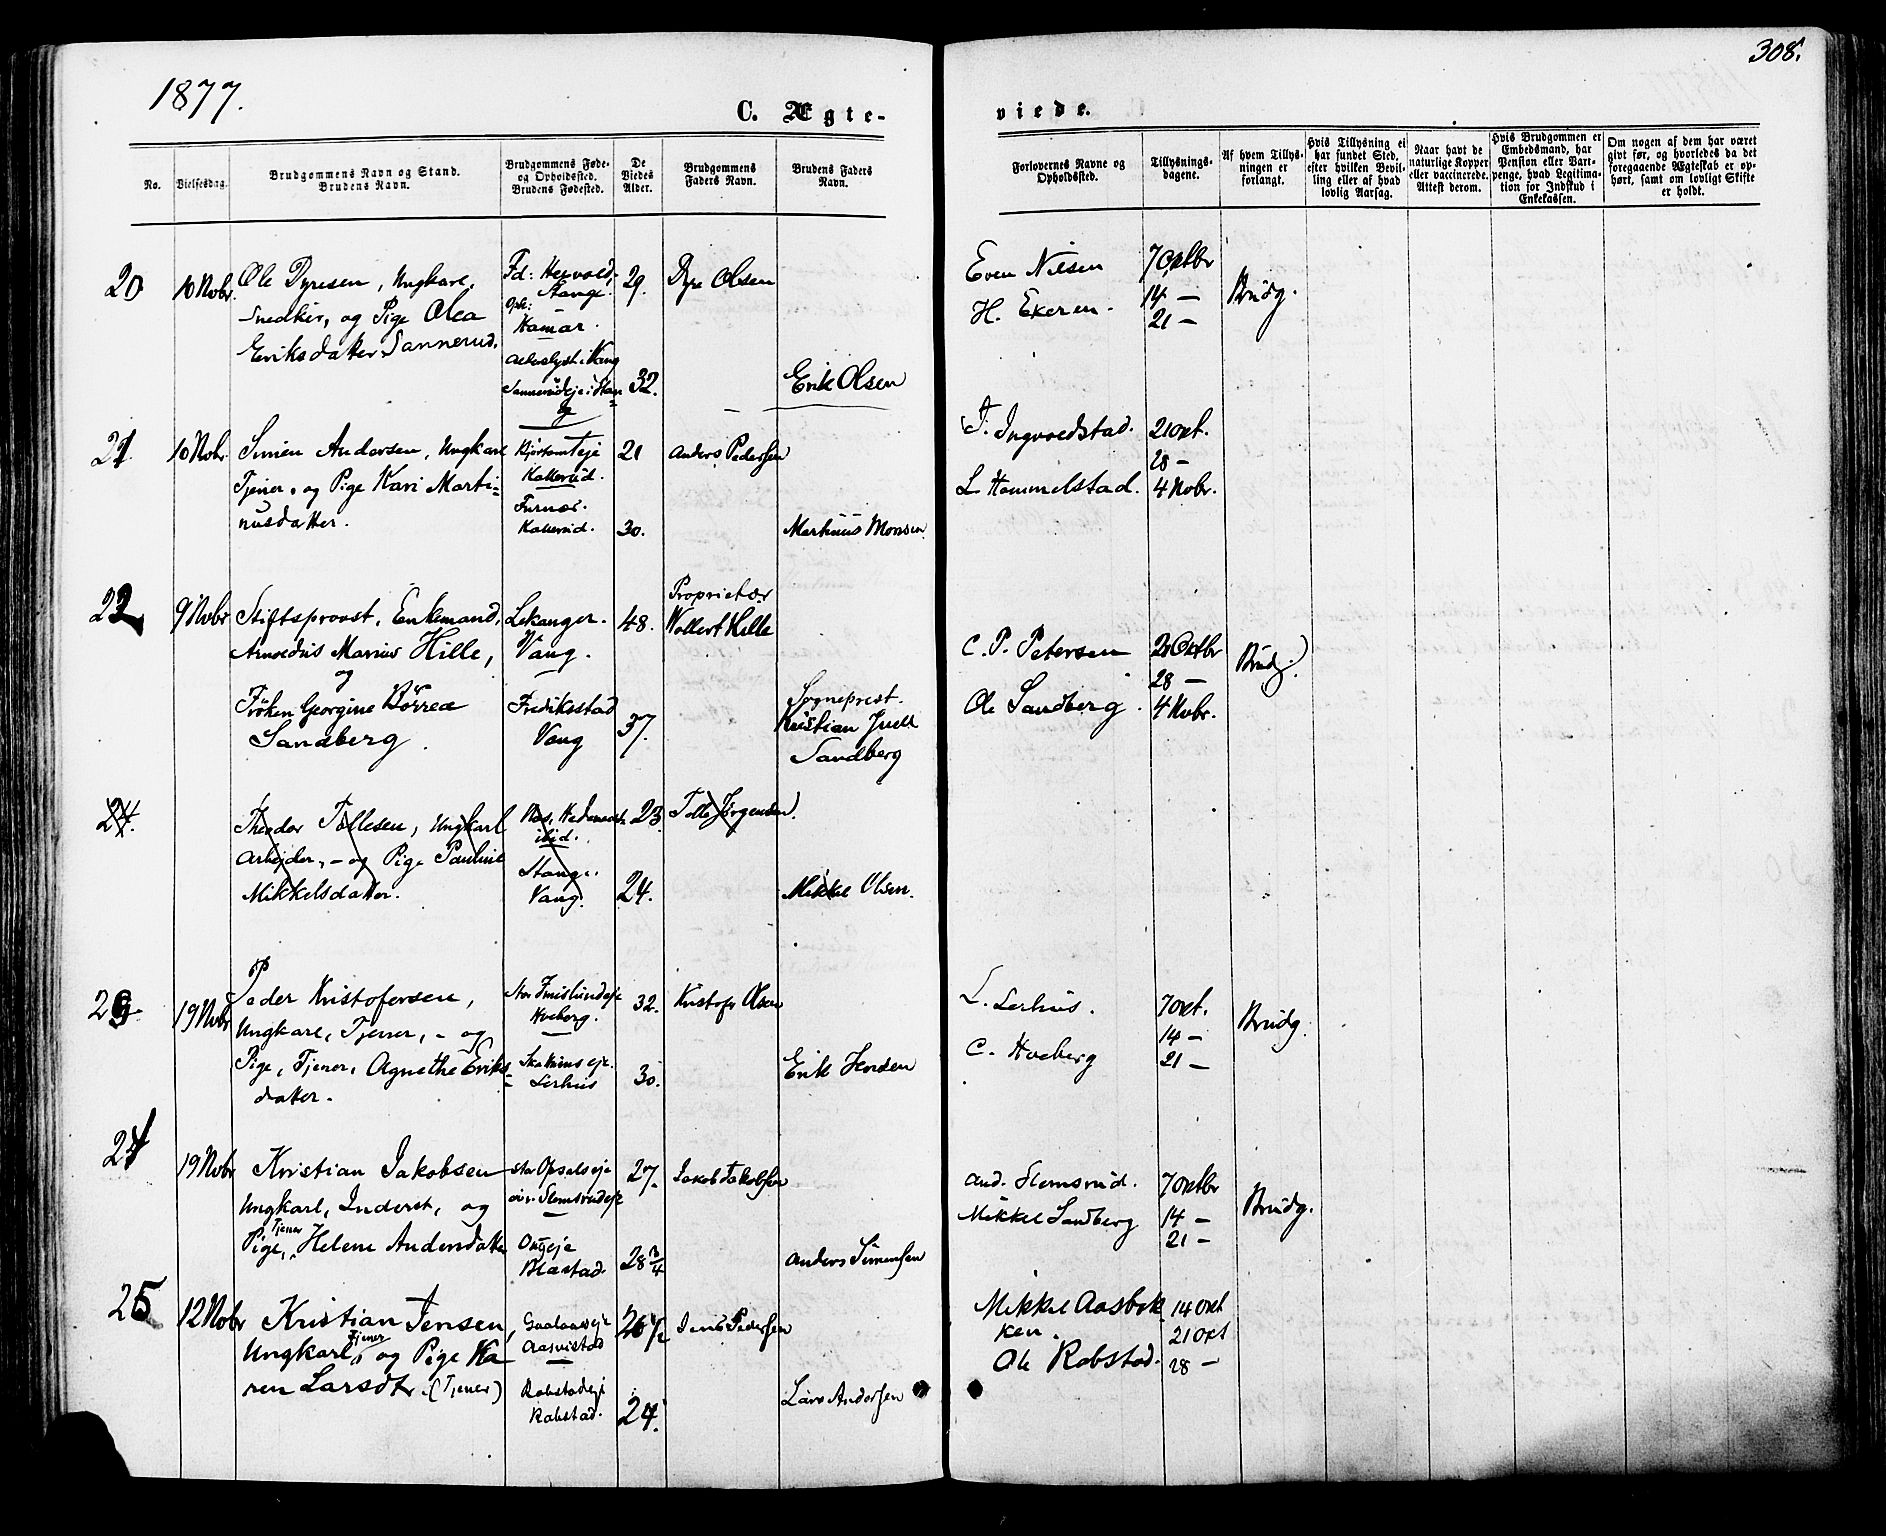 1877.
308.
C. Ægte-
viede.
No.
Vielsesdag.
Brudgommens Navn og Stand.
Brudens Navn.
Brudgommens Føde-
og Opholdssted.
Brudens Fødested.
De
Viedes
Alder.
Brudgommens
Faders Navn.
Brudens Faders
Navn.
Forlovernes Navne og
Opholdssted.
Tillysnings-
dagene.
Af hvem Tillys-
ningen er
forlangt.
Hvis Tillysning ei
har fundet Sted,
efter hvilken Bevil-
ling eller af hvad
lovlig Aarsag.
Naar havt de
naturlige Kopper
eller vaccinerede.
Attest derom.
Hvis Brudgommen er
Embedsmand, har
Pension eller Vart-
penge, hvad Legitima-
tion for Indskud i
Enkekassen.
Om nogen af dem har været
givt før, og hvorledes da det
foregaaende Ægteskab er op-
hørt, samt om lovligt Skifte
er holdt.
20
10 Nobr.
Ole Dyresen, Ungkarl,
Snedker, og Pige Olea
Eriksdatter Sannerud.
Fd:
Stange.
Hamar.
i Vang
29.
32.
Dyre Olsen
Erik Olsen
Even Nilsen
H. Ekeren.
7 Oktbr
14 —
21 —
Brudg.
21
10 Nobr.
Simen Andersen, Ungkarl
Tjener, og Pige Kari Marti=
nusdatter.
Kallerud.
Furnæs.
Kallerud.
21
30.
Anders Pedersen
Martinus Monsen
T. Ingvoldstad.
L. Hommelstad.
21 Okt.
28 —
4 Nobr.
22
9 Nobr
Stiftsprovst, Enkemand,
Arnoldus Marius Hille,
og
Frøken Georgine Børrea
Sandberg.
Lekanger.
Vang.
Fredriksstad
Vang
48.
37.
Proprietær
Wollert Hille
Sogneprest.
Kristian Juell
Sandberg
C. P. Petersen
Ole Sandberg.
21 Oktbr
28 —
4 Nobr.
Brudg.
24.
Theodor Tollesen, Ungkarl
Arbejder, — og Pige Pauline
Mikkelsdatter.
ibid.
Stange.
Vang.
23
24.
Tolle Jørgensen.
Mikkel Olsen.
23
19 Nobr
Peder Kristofersen,
Ungkarl, Tjener, — og
Pige, Tjener, Agnethe Eriks
=datter.
Hveberg.
Lerhus
32.
30.
Kristofr Olsen
Erik Jensen
L. Lerhus.
C. Hveberg
7 Okt.
14 —
21 —
Brudg.
24
19 Nobr
Kristian Jakobsen
Ungkarl, Inderst, og
Tjener
Pige, Helene Andersdatter
stor Opsalseje
Blæstad.
27.
28 3/4
Jakob Jakobsen
Anders Simensen
And. Slemsrud.
Mikkel Sandberg
7 Oktbr
14 —
21 —
Brudg.
25
12 Nobr
Kristian Jensen,
Tjener
Ungkarl, og Pige Ka
ren Larsdtr. (Tjener)
Aasvistad
Robstadeje
Robstad.
26 1/2
24.
Jens Pedersen
Lars Andersen
Mikkel Aasbæk
ken.
Ole Robstad.
14 Okt
21 Okt
28 —